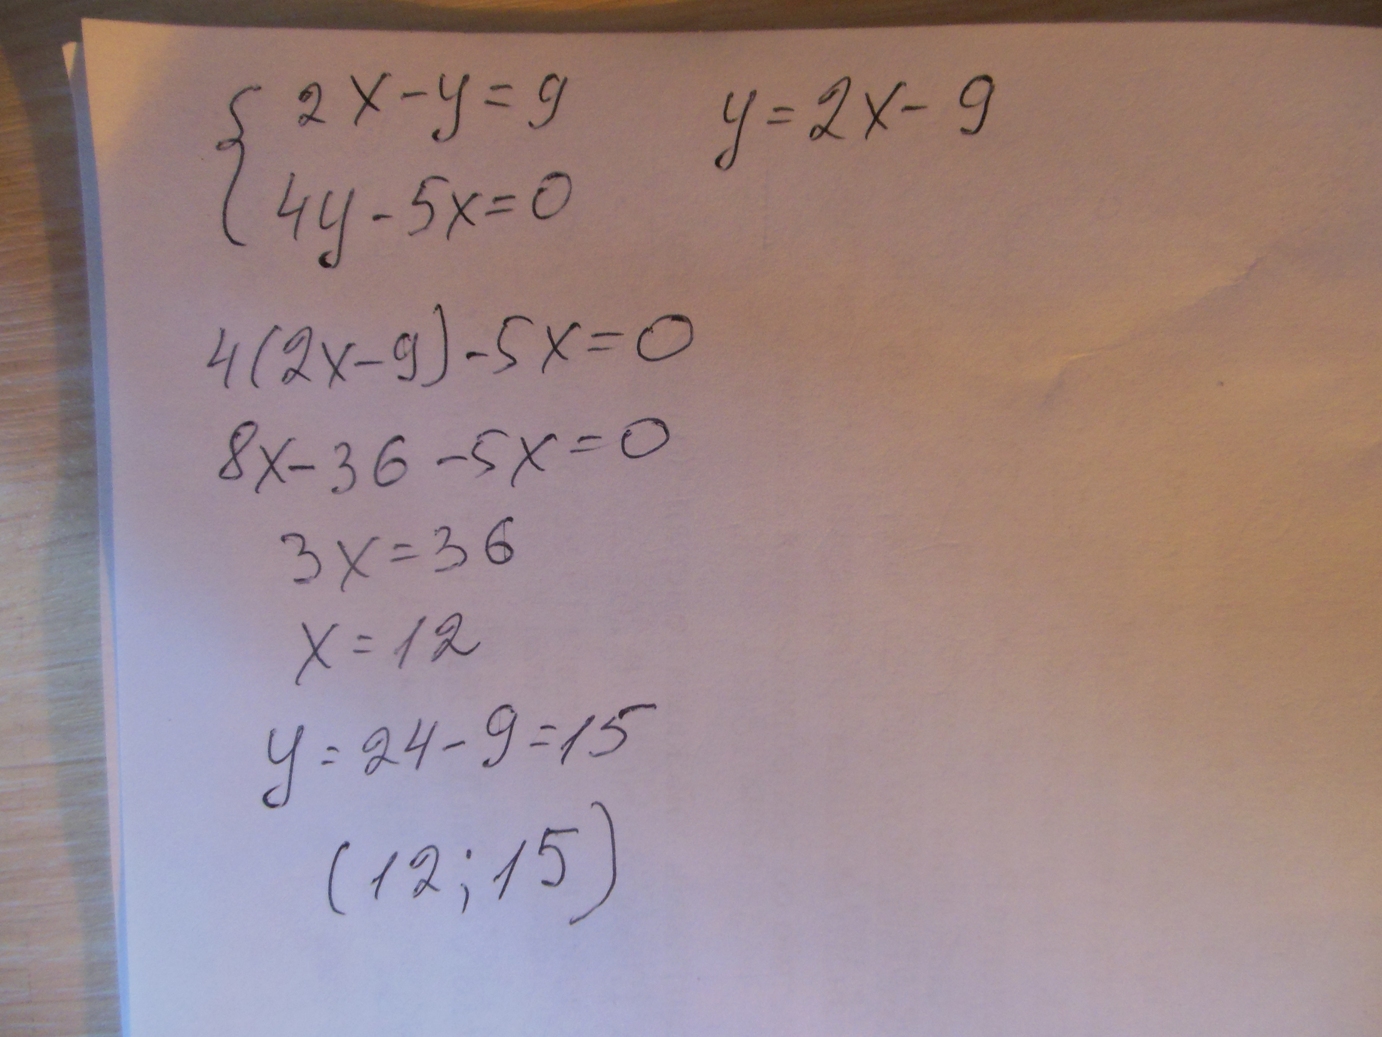 { 2x-y=9   y=2x-9
4y-5x=0
4(2x-9)-5x=0
8x-36-5x=0
3x=36
x=12
y=24-9=15
(12;15)